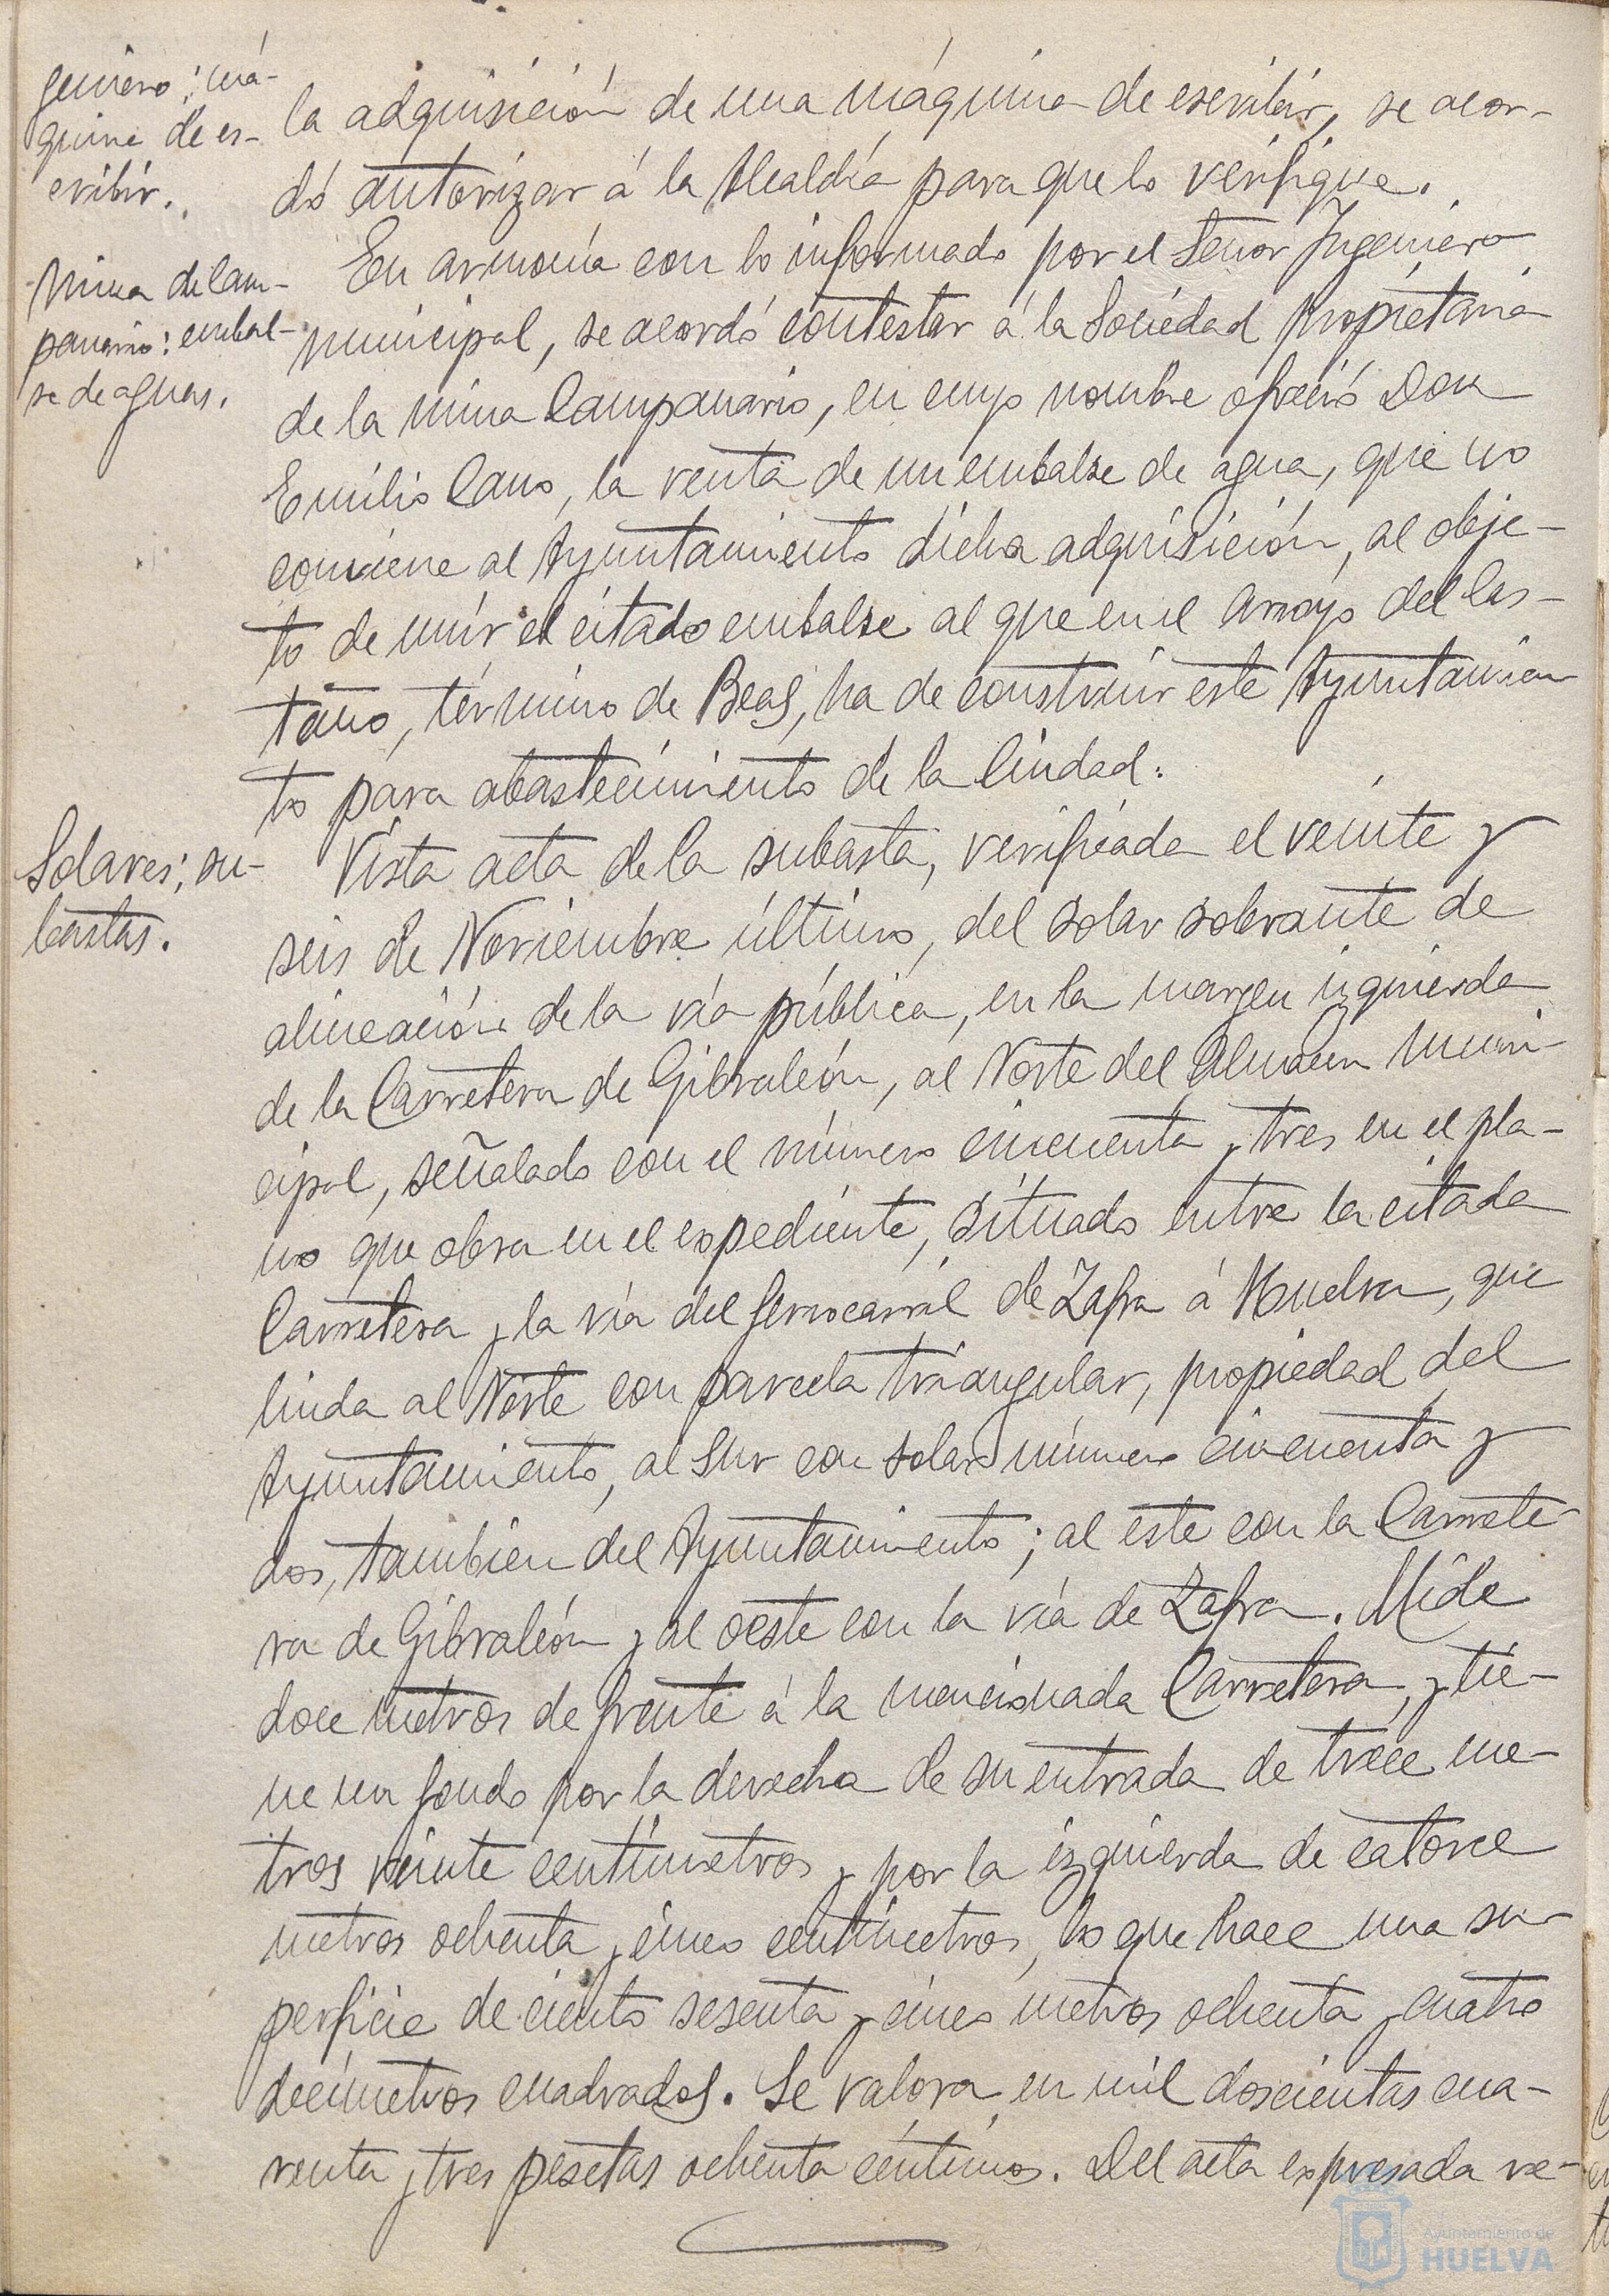 geniero; má-
quina de es-
cribir.
la adquisición de una máquina de escribir, se acor-
dó autorizar á la Alcaldía para que lo verifique.
Mina de Cam-
panario: embal-
se de aguas.
En armonía con lo informado por el Señor Ingeniero
municipal, se acordó contestar á la Sociedad propietaria
de la mina Campanario, en cuyo nombre ofreció Don
Emilio Cano, la venta de un embalse de agua, que no
conviene al Ayuntamiento dicha adquisición, al obje-
to de unir el citado embalse al que en el Arroyo del Cas-
taño, término de Beas, ha de construir este Ayuntamien
to para abastecimiento de la Ciudad.
Solares; su-
bastas.
Vista acta de la subasta, verificada el veinte y
seis de Noviembre último, del solar sobrante de
alineación de la vía pública, en la margen izquierda
de la Carretera de Gibraleón, al Norte del Almacen muni-
cipal, señalado con el número cincuenta y tres en el pla-
no que obra en el expediente, situado entre la citada
Carretera y la vía del ferrocarril de Zafra á Huelva, que
linda al Norte con parcela triangular, propiedad del
Ayuntamiento, al Sur con solar número cincuenta y
dos, tambien del Ayuntamiento; al este con la Carrete-
ra de Gibraleón y al oeste con la vía de Zafra. Mide
doce metros de frente á la mencionada Carretera, y tie-
ne un fondo por la derecha de su entrada de trece me-
tros veinte centímetros y por la izquierda de catorce
metros ochenta y cinco centímetros, lo que hace una su-
perficie de ciento sesenta y cinco metros ochenta y cuatro
decímetros cuadrados. Se valora en mil doscientas cua-
renta y tres pesetas ochenta céntimos. Del acta expresada re-
Ayuntamiento de
HUELVA